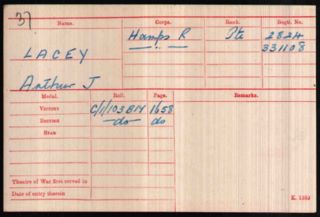 37
Name. Corps. Rank. Regtl. No.
LACEY Hamps R Pte 2824
" 331108
Arthur J
Medal. Roll. Page. Remarks.
Victory C/1/103 B14 1658
British do do
Star
Theatre of War first served in
Date of entry therein
K. 1380